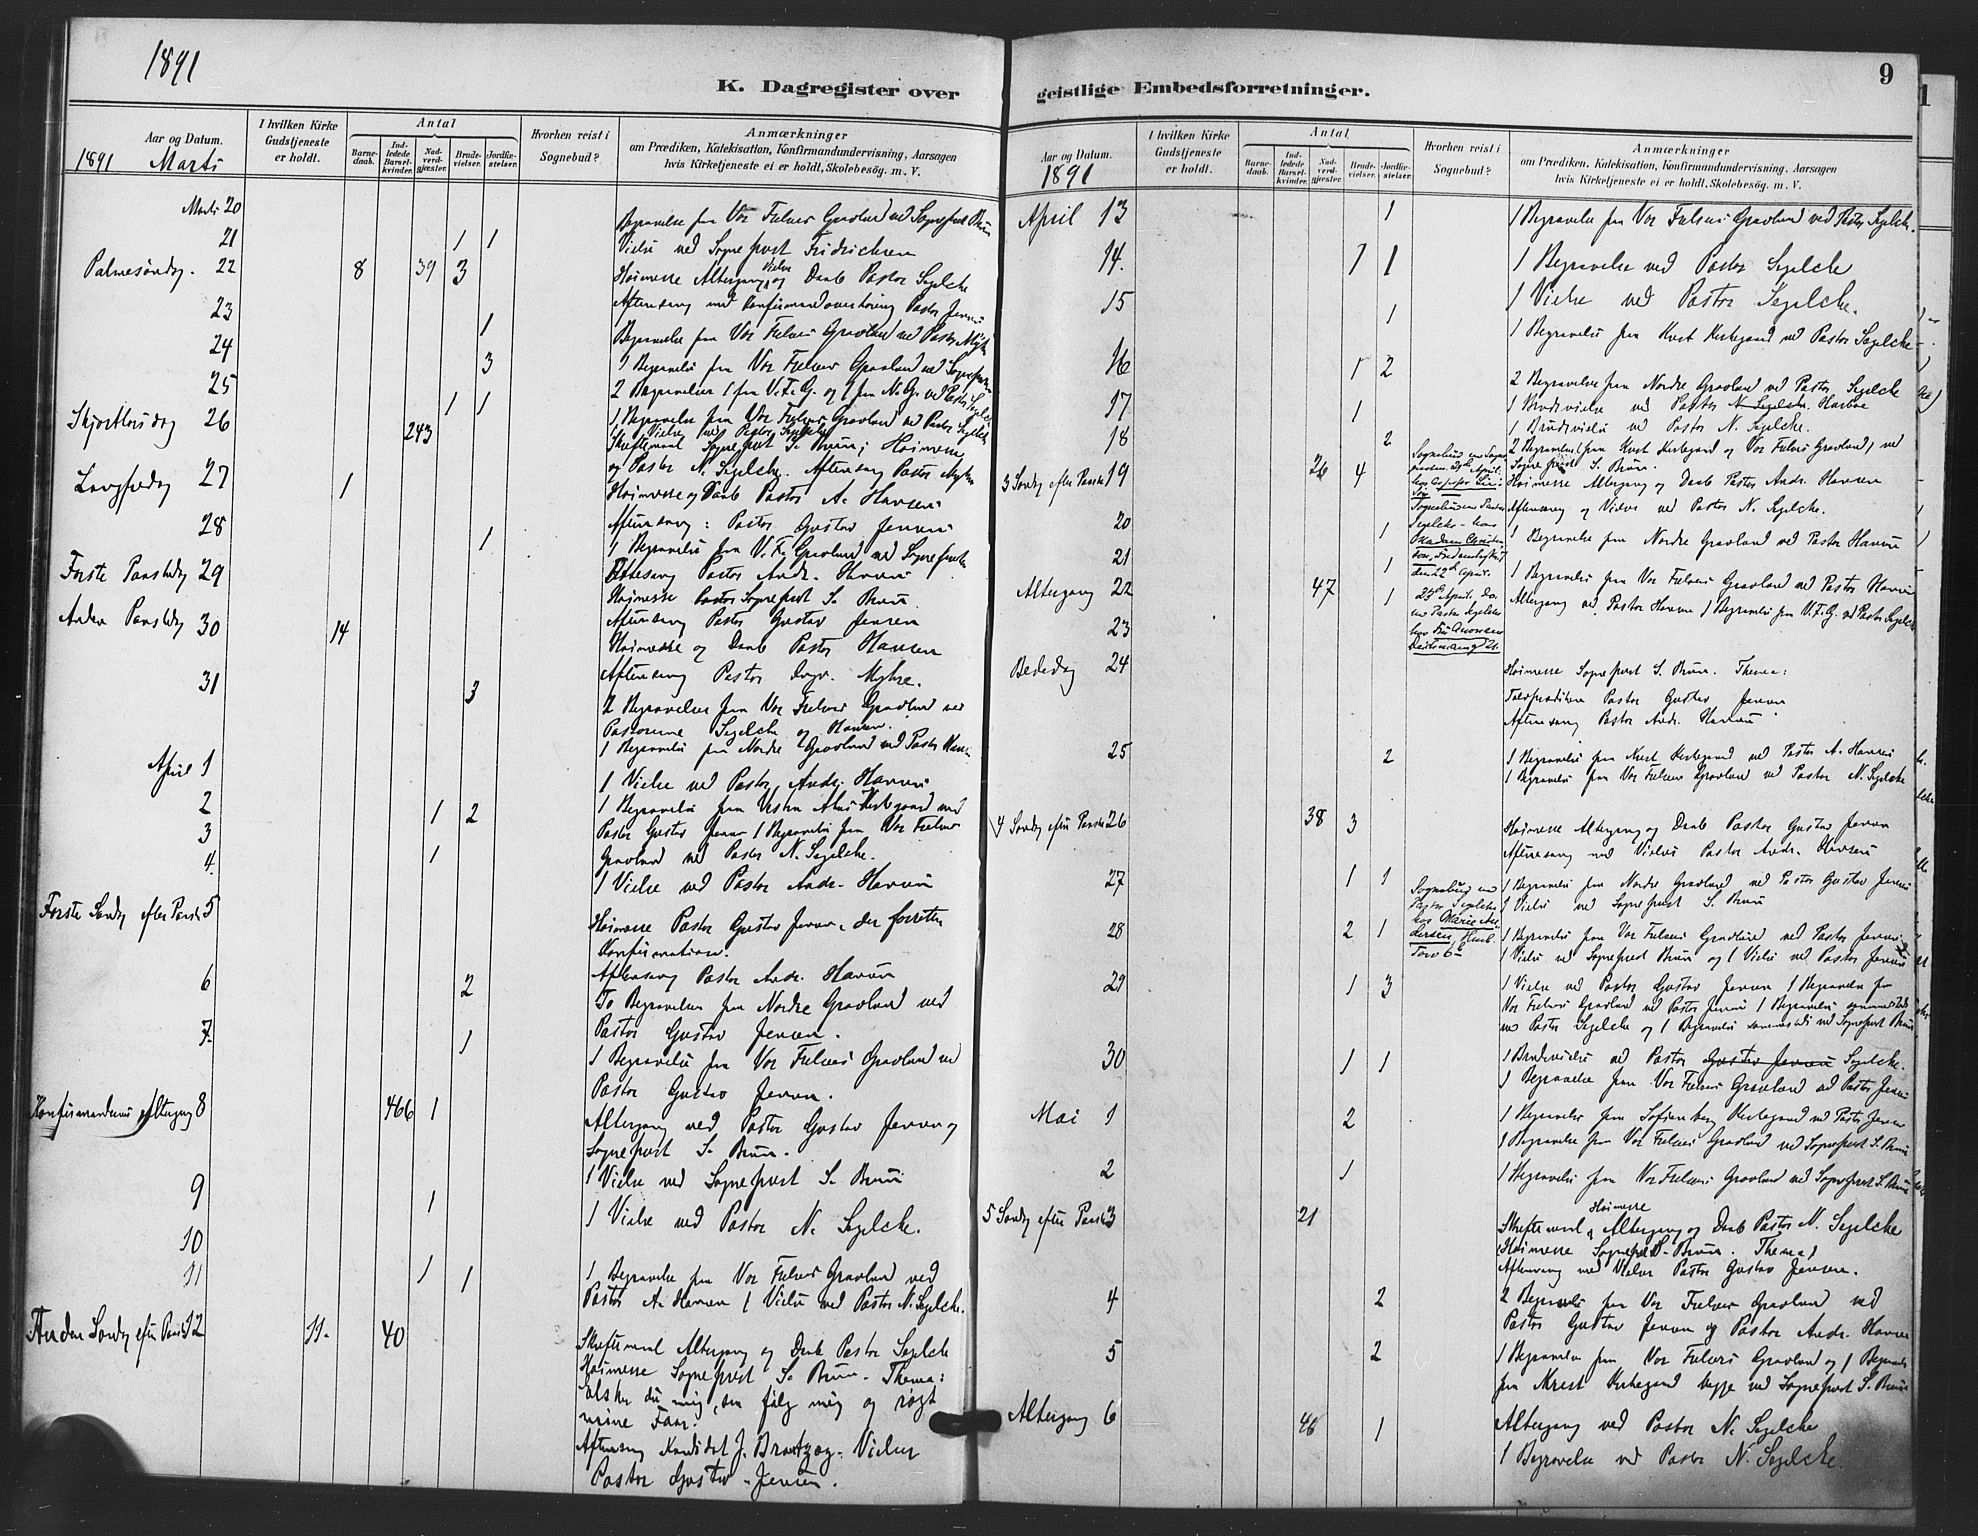 1891
K. Dagregister over
Aar og Datum.
1891 Marts
I hvilken Kirke Gudstjeneste er holdt.
Antal
Barnedaab.
Indledede Barselkvinder.
Nadverdgjester.
Brudevielser.
Jordfæstelser.
Hvorhen reist i Sognebud?
Anmærkninger
om Prædiken, Katekisation, Konfirmandundervisning, Aarsagen
hvis Kirketjeneste ei er holdt, Skolebesøg. m. V.
Marts 20
Begravelse fra Vor Frelsers Gravlund ved Sognepræst Bruun
21 1 1
Vielse ved Sognepræst Fridrichsen
Palmesøndag. 22 8 39 3
Høimesse Altergang, Vielse og Daab Pastor Segelcke
Aftensang med Konfirmandoverhøring Pastor Jensen
23 1
Begravelse fra Vor Frelsers Gravlund ved Pastor Myhre
24 3
1 Begravelse fra Vor Frelsers Gravlund ved Sognepræsten
25
2 Begravelser 1 fra V.F.G. og 1 fra N.G. ved Pastor Segelcke
1 1
1 Begravelse fra Vor Frelsers Gravlund ved Pastor Segelcke
1 Vielse ved Pastor Segelcke
Skjærthorsdag 26 243
Skriftemaal Sognepræst S. Bruun; Høimesse
og Pastor N. Segelcke. Aftensang Pastor Myhre
Langfredag 27 1
Høimesse og Daab Pastor A. Hansen
Aftensang: Pastor Gustav Jensen
28 1
1 Begravelse fra V.F. Gravlund ved Sognepræsten
Første Paaskedag 29
Ottesang Pastor Andr. Hansen
Høimesse Pastor Sognepræst S. Bruun
Aftensang Pastor Gustav Jensen
Anden Paaskedag 30 14
Høimesse og Daab Pastor Hansen
Aftensang Pastor Myhre.
31 3
2 Begravelser fra Vor Frelsers Gravlund ved
Pastorerne Segelcke og Hansen.
1 Begravelse fra Nordre Gravlund ved Pastor Hansen
April 1
1 Vielse ved Pastor Andr. Hansen
2 1 2
1 Begravelse fra Vestre Akers Kirkegaard ved
3
Pastor Gustav Jensen 1 Begravelse fra Vor Frelsers
Gravlund ved Pastor N. Segelcke.
4. 1
1 Vielse ved Pastor Andr. Hansen
Første Søndag efter Paaske 5
Høimesse Pastor Gustav Jensen, der forretter
Konfirmation.
Aftensang Pastor Andr. Hansen
6 2
To Begravelser fra Nordre Gravlund ved
Pastor Gustav Jensen.
7. 1
1 Begravelse fra Vor Frelsers Gravlund ved
Pastor Gustav Jensen.
Konfirmandernes Altergang 8 466 1
Altergang ved Pastor Gustav Jensen og
Sognepræst S. Bruun.
1 Vielse ved Sognepræst S. Bruun
9 1
1 Vielse ved Pastor N. Segelcke.
10
11 1 1
1 Begravelse fra Vor Frelsers Gravlund ved
Pastor A. Hansen 1 Vielse ved Pastor N. Segelcke.
Anden Søndag efter Paaske 12 11. 40
Skriftemaal Altergang og Daab Pastor Segelcke
Høimesse Sognepræst S. Bruun. Thema:
elsker du mig, saa følg mig og røgt
mine Faar.
Aftensang Kandidat J. Vielser
Pastor Gustav Jensen.
9
geistlige Embedsforretninger.
Aar og Datum.
1891
I hvilken Kirke Gudstjeneste er holdt.
Antal
Barnedaab.
Indledede Barselkvinder.
Nadverdgjester.
Brudevielser.
Jordfæstelser.
Hvorhen reist i Sognebud?
Anmærkninger
om Prædiken, Katekisation, Konfirmandundervisning, Aarsagen
hvis Kirketjeneste ei er holdt, Skolebesøg. m. V.
April 13 1
1 Begravelse fra Vor Frelsers Gravlund ved Pastor Segelcke.
14. 1 1
1 Begravelse ved Pastor Segelcke
1 Vielse ved Pastor Segelcke.
15 1
1 Begravelse fra Krist Kirkegaard ved Pastor Segelcke
16 1 2
2 Begravelse fra Nordre Gravlund ved Pastor Segelcke
1 Brudevielse ved Pastor N. Segelcke.
17 1
1 Brudevielse ved Pastor N. Segelcke.
18 2
2 Begravelser (fra Krist Kirkegaard og Vor Frelsers Gravlund) ved
Sognepræst S. Bruun.
3 Søndag efter Paaske 19 26 4
Høimesse Altergang og Daab Pastor Andr. Hansen
Aftensang og Vielse ved Pastor N. Segelcke.
20 1
1 Begravelse fra Nordre Gravlund ved Pastor Hansen
21 1
1 Begravelse fra Vor Frelsers Gravlund ved Pastor Hansen
Altergang 22 47 1
Altergang ved Pastor Hansen 1 Begravelse fra V.F.G. ved Pastor Segelcke
23
Bededag 24
Høimesse Sognepræst S. Bruun. Thema:
Pastor Gustav Jensen
Aftensang Pastor Andr. Hansen
25 2
1 Begravelse fra Krist Kirkegaard ved Pastor A. Hansen
1 Begravelse fra Vor Frelsers Gravlund ved Pastor N. Segelcke
4 Søndag efter Paaske 26 38 3
Høimesse Altergang og Daab Pastor Gustav Jensen
Aftensang med Vielser Pastor Andr. Hansen
27 1 1
Sognebud ved
Pastor Segelcke
hos Marie
1 Begravelse fra Nordre Gravlund ved Pastor Gustav Jensen
1 Vielse ved Sognepræst S. Bruun
28 2 1
1 Begravelse fra Vor Frelsers Gravlund ved Pastor Jensen
1 Vielse ved Sognepræst Bruun og 1 Vielse ved Pastor Jensen
29 1 3
1 Vielse ved Pastor Gustav Jensen 1 Begravelse fra
Vor Frelsers Gravlund ved Pastor Jensen 1 Begravelse sammesteds
ved Pastor Segelcke og 1 Begravelse sammesteds ved Sognepræst Bruun
30 1 1
1 Brudevielse ved Pastor Gustav Jensen Segelcke.
1 Begravelse fra Vor Frelsers Gravlund ved Pastor Jensen
Mai 1 2
1 Begravelse fra Sofienberg Kirkegaard ved Pastor Jensen
1 Begravelse fra Vor Frelsers Gravlund ved Sognepræst S. Bruun
2 1
1 Begravelse fra Vor Frelsers Gravlund ved Sognepræst S. Bruun
5 Søndag efter Paaske 3 21
Høimesse
Skriftemaal, Altergang og Daab Pastor N. Segelcke
Høimesse Sognepræst S. Bruun. Thema:
Aftensang med Vielser Pastor Gustav Jensen.
4 2
2 Begravelse fra Vor Frelsers Gravlund ved
Pastor Gustav Jensen og Pastor Andr. Hansen
5 2
1 Begravelse fra Vor Frelsers Gravlund og 1 Begravelse
fra Krist Kirkegaard begge ved Sognepræst S. Bruun
Altergang 6 46 1
Altergang ved Pastor N. Segelcke
1 Begravelse ved Pastor N. Segelcke.